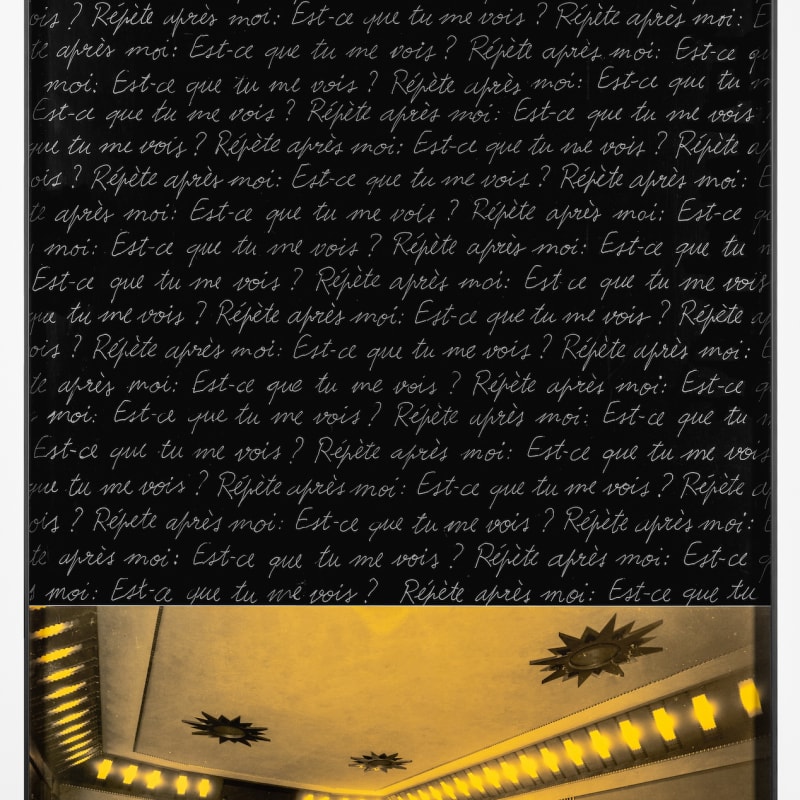 ois ? Répète après moi: Est-ce que tu me vois ? Répète après moi: E
te après moi: Est-ce que tu me vois ? Répète après moi: Est-ce qu
moi: Est-ce que tu me vois ? Répète après moi: Est-ce que tu
Est-ce que tu me vois ? Répète après moi: Est-ce que tu me vois ?
que tu me vois ? Répète après moi: Est-ce que tu me vois ? Répète a
ois ? Répète après moi: Est-ce que tu me vois ? Répète après moi: E
te après moi: Est-ce que tu me vois ? Répète après moi: Est-ce q
moi: Est-ce que tu me vois ? Répète après moi: Est-ce que tu
Est-ce que tu me vois ? Répète après moi: Est-ce que tu me vois
que tu me vois ? Répète après moi: Est-ce que tu me vois ? Répète a
ois ? Répète après moi: Est-ce que tu me vois ? Répète après moi: E
te après moi: Est-ce que tu me vois ? Répète après moi: Est-ce q
moi: Est-ce que tu me vois ? Répète après moi: Est-ce que tu
Est-ce que tu me vois ? Répète après moi: Est-ce que tu me vois
que tu me vois ? Répète après moi: Est-ce que tu me vois ? Répète a
ois ? Répete après moi: Est-ce que tu me vois ? Répète après moi: E
te après moi: Est-ce que tu me vois ? Répète après moi: Est-ce q
moi: Est-ce que tu me vois ? Répète après moi: Est-ce que tu